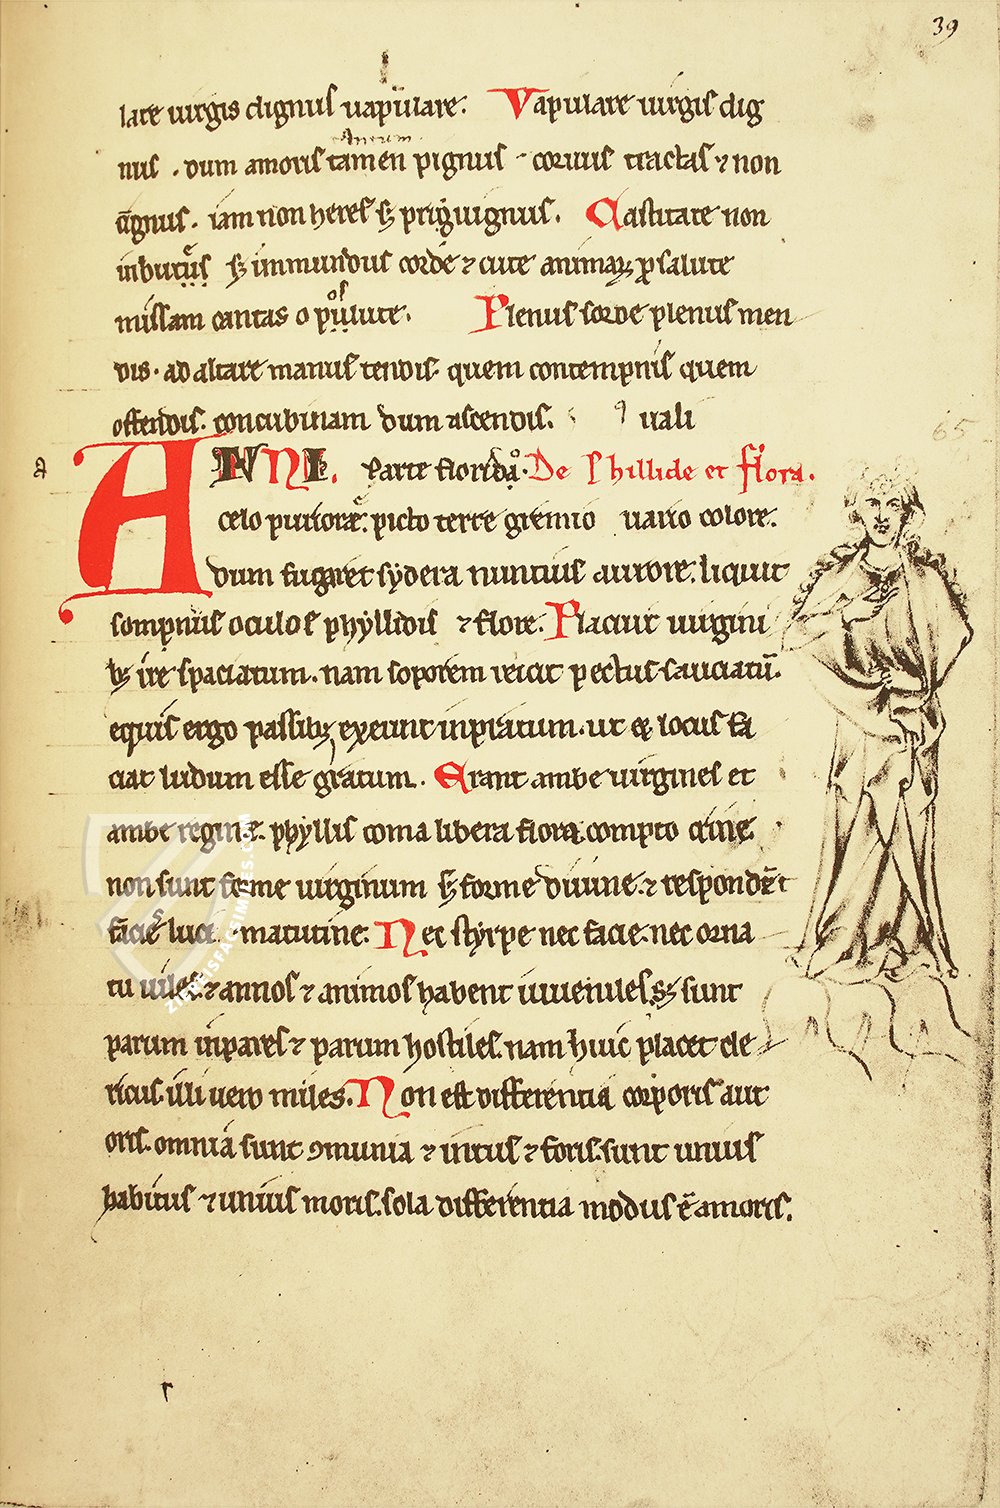 39
lare uirgis dignus uapulare. Vapulare uirgis dig
nus. dum amoris tamen pignus coruus tractas ⁊ non
cignus. iam non heres sꝫ priuignus. Castitate non
inbutus sꝫ inmundus corde ⁊ cute animaꝝ ꝓ salute
missam cantas o pollute. Plenus sorde plenus men
dis. ad altare manus tendis. quem contempnis quem
offendis. concubinam dum ascendis. uali
65
A
ANNI. Parte florida. De Phillide et flora.
celo puriore. picto terre gremio uario colore.
dum fugaret sydera nuntius aurore. liquit
sompnus oculos phyllidis ⁊ flore. Placuit uirgini
bꝫ ire spaciatum. nam soporem reicit pectus sauciatū.
equis ergo passibꝫ exeunt in pratum. ut et locus fa
ciat ludum esse gratum. Erant ambe uirgines et
ambe regine. phyllis coma libera flora compto crine.
non sunt forme uirginum sꝫ forme diuine. ⁊ respondēt
facies luci matutine. Nec styrpe nec facie. nec orna
tu uiles. ⁊ annos ⁊ animos habent iuueniles. sꝫ sunt
parum inpares ⁊ parum hostiles. nam huic placet cle
ricus. illi uero miles. Non est differentia corporis aut
oris. omnia sunt ꝯmunia ⁊ intus ⁊ foris. sunt unius
habitus ⁊ unius moris. sola differentia modus ē amoris.
r